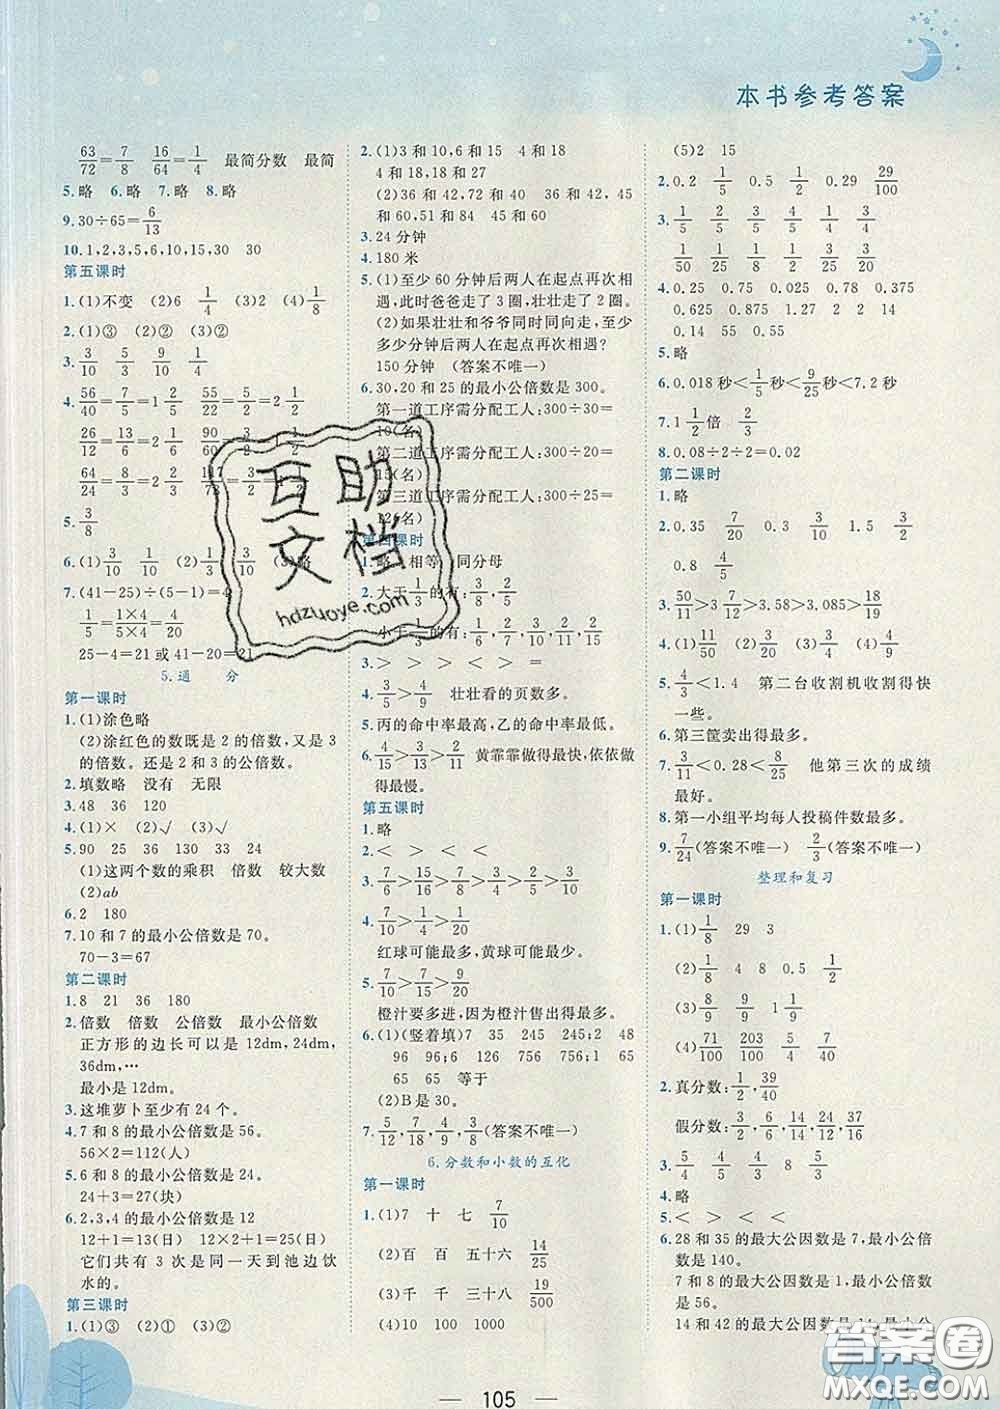 本书参考答案
63/72=7/8 16/64=1/4 最简分数 最简
5.略 6.略 7.略 8.略
9.30÷65=6/13
10.1,2,3,5,6,10,15,30 30
第五课时
1.(1)不变 (2)6 1/4 (3)2 (4)1/8
2.(1)③ (2)② (3)③
3.3/10 3/5 3/5 3/10
4.56/40=7/5=1 2/5 55/22=5/2=2 1/2
26/12=13/6=2 1/6 90/60=3/2=1 1/2
60/24=5/2=2 1/2
5.3/8
6.(1)3/10 1/10 (2)1/4 1/4 (3)略
7.(41-25)÷(5-1)=4
1/5=1×4/5×4=4/20
25-4=21或41-20=21
5.通 分
第一课时
1.(1)涂色略
(2)涂红色的数既是2的倍数,又是3
的倍数。还是2和3的公倍数。
2.填数略 没有 无限
3.48 36 120
4.(1)× (2)√ (3)√
5.90 25 36 130 33 24
(1)这两个数的乘积 倍数 较大数
(2)ab
6.2 180
7.10和7的最小公倍数是70。
70-3=67
第二课时
1.8 21 36 180
2.倍数 倍数 公倍数 最小公倍数
正方形的边长可以是12dm,24dm,
36dm,…
最小是12dm。
3.这堆萝卜至少有24个。
4.7和8的最小公倍数是56。
56×2=112(人)
5.6和8的最小公倍数是24。
24+3=27(块)
6.2,3,4的最小公倍数是12
12+1=13(日) 12×2+1=25(日)
它们共有3次是同一天到池边饮
水的。
第三课时
1.(1)③ (2)① (3)③
2.(1)3和10,6和15 4和18
4和18,18和27
(2)36和42,72和40 36和42,45
和60,54和81 45和60
3.24分钟
4.180米
5.(1)至少60分钟后两人在起点再次相
遇,此时爸爸走了3圈,壮壮走了2圈。
(2)如果壮壮和爷爷同时同向走,至少
多少分钟后两人在起点再次相遇?
150分钟 (答案不唯一)
6.30,20和25的最小公倍数是300。
第一道工序需分配工人:300÷30=
10(名)
第二道工序需分配工人:300÷20=
15(名)
第三道工序需分配工人:300÷25=
12(名)
第四课时
1.略 相等 同分母
2.大于1/3的有:3/4,2/5
小于1/3的有:1/6,2/7,3/10,2/11,2/15
3.> > > < =
4.3/5>4/9 壮壮看的页数多。
5.丙的命中率最高,乙的命中率最低。
6.4/15>3/13>2/11 黄霏霏做得最快,依依做
得最慢。
第五课时
1.略
2.< > < <
3.7/6>14/15>9/10>7/8>3/4>5/7>2/3
4.7/10>1/4>1/20
红球可能最多,黄球可能最少。
5.7/10>7/15>9/20
橙汁要多进,因为橙汁售出得最多。
6.(1)(竖着填)7 35 245 245;2 48
96 96;6 126 756 756;1 65
65 65 等于
(2)B是30。
7.5/12,7/18,4/9,3/8(答案不唯一)
6.分数和小数的互化
第一课时
1.(1)7 十 七 7/10
(2)百 百 五十六 14/25
(3)千 千 三十八 19/500
(4)10 100 1000
(5)2 15
2.0.2 1/5 0.5 1/2 0.29 29/100
3.1/5 2/5 3/5 4/5 1/4 3/4
1/50 1/25 1/20 1/10 1/8 3/8
4.0.25 0.75 0.4 0.78 0.375
0.625 0.875 1.125 2 2 14
0.14 55 0.55
5.略
6.0.018秒<1/5秒<9/25秒<7.2秒
7.1 1/2倍 2/3
8.0.08÷2÷2=0.02
第二课时
1.略
2.0.35 7/20 0.3 3/10
0.8 4/5
3.50/11>3 7/9>3.58>3.085>18/19
4.(1)11/50 (2)3/20 (3)1/4
5.4/3<1.4 第二台收割机收割得快
一些。
6.第三筐卖出得最多。
7.3/11<0.28<8/25 他第三次的成绩
最好。
8.第一小组平均每人投稿件数最多。
9.7/24(答案不唯一) 2/3(答案不唯一)
整理和复习
第一课时
1.(1)1/8 29 3
(2)1/2 4 8 0.5 1/2
(3)8/9 8/9 1/9 1/9
(4)71/100 203/100 5/4 7/40
2.真分数:1/2,39/40
假分数:3/2,6/6,7/6,14/14,12/7,37/16
3.5/4 4/5 1/4 8 5/4
4.略
5.< > > < >
6.28和35的最大公因数是7,最小公倍
数是140。
7和8的最大公因数是1,最小公倍数
是56。
14和42的最大公因数是14,最小公倍
105
互助
文档
hdzuoye.com
答案圈
MXQE.COM